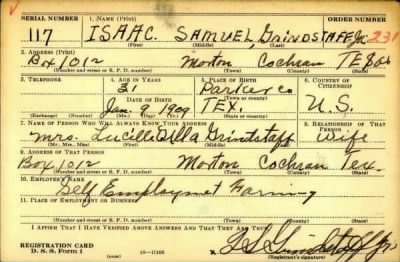 SERIAL NUMBER 1. NAME (Print) ORDER NUMBER
117 ISAAC SAMUEL Grindstaff Jr 231
(First) (Middle) (Last)
2. ADDRESS (Print)
Box 1012 Morton Cochran TEXas
(Number and street or R. F. D. number) (Town) (County) (State)
3. TELEPHONE 4. AGE IN YEARS 5. PLACE OF BIRTH 6. COUNTRY OF CITIZENSHIP
31 Parker co
DATE OF BIRTH (Town or county)
Jan. 9 1909 TEX. U.S.
(Exchange) (Number) (Mo.) (Day) (Yr.) (State or country)
7. NAME OF PERSON WHO WILL ALWAYS KNOW YOUR ADDRESS 8. RELATIONSHIP OF THAT PERSON
Mrs. Lucille Grindstaff Wife
(Mr., Mrs., Miss) (First) (Middle) (Last)
9. ADDRESS OF THAT PERSON
Box 1012 Morton Cochran Tex.
(Number and street or R. F. D. number) (Town) (County) (State)
10. EMPLOYER'S NAME
Self Employmet Farming
11. PLACE OF EMPLOYMENT OR BUSINESS
(Number and street or R. F. D. number) (Town) (County) (State)
I AFFIRM THAT I HAVE VERIFIED ABOVE ANSWERS AND THAT THEY ARE TRUE.
REGISTRATION CARD
D. S. S. Form 1 16—17105 (Registrant's signature)